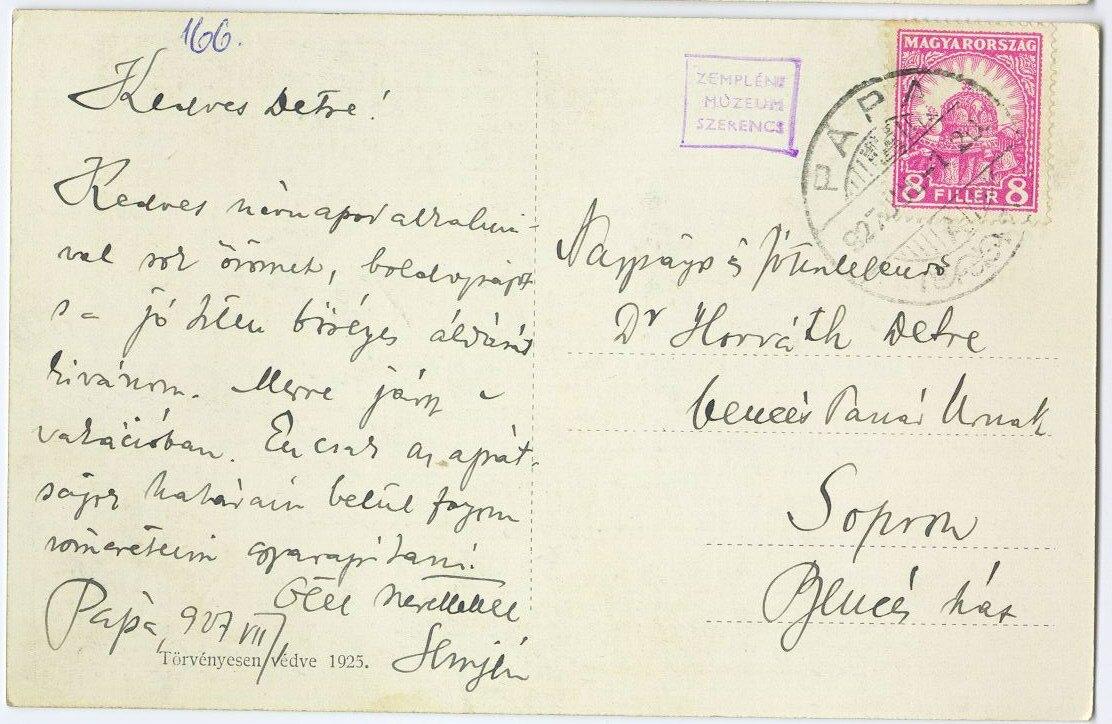 166.
Kedves Detre!
Kedves névnapod alkalmá-
val sok örömet, boldogságot
s a jó Isten bőséges áldását
kivánom. Merre jársz a
vakációban. Én csak az apát-
ságok határain belül fogom
ismereteim gyarapítani.
Ölel szeretettel
Pápa, 927 VII/1
Semjén
Törvényesen védve 1925.
ZEMPLÉNI
MÚZEUM
SZERENCS
MAGYARORSZÁG
8 FILLÉR 8
PÁPA
Nagyságos és főtisztelendő
Dr Horváth Detre
bencés Tanár Urnak
Sopron
Bencés ház